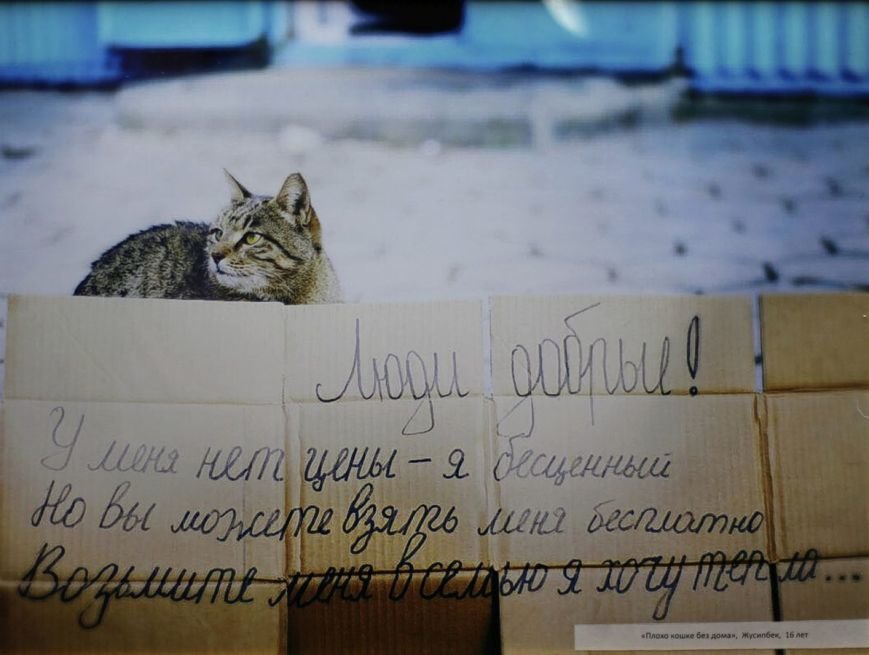 Люди добрыи!
У меня нет цены – я бесценный
Но вы можете взять меня бесплатно
Возьмите меня в семью я хочу тепла...
«Плохо кошке без дома», Жусипбек, 16 лет